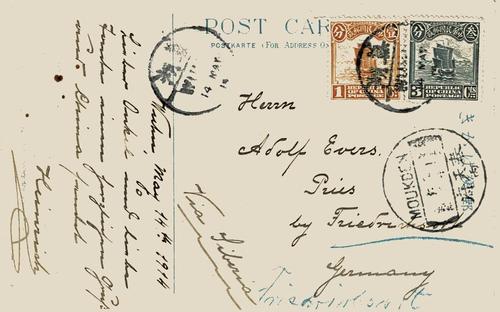 POST CAR
POSTKARTE (For Address On
分 壹
1 REPUBLIC OF CHINA POSTAGE
分 叁
3 Cts REPUBLIC OF CHINA POSTAGE
14 MAY 14
Wuhu, May 14th 1914
Lieber Onkel und liebe
Tante
aus China sendet
Heinrich
Via Siberia
Herrn
Adolf Evers.
Pries
by Friedrichsort
Germany
Friedrichsort
MOUKDEN
奉天